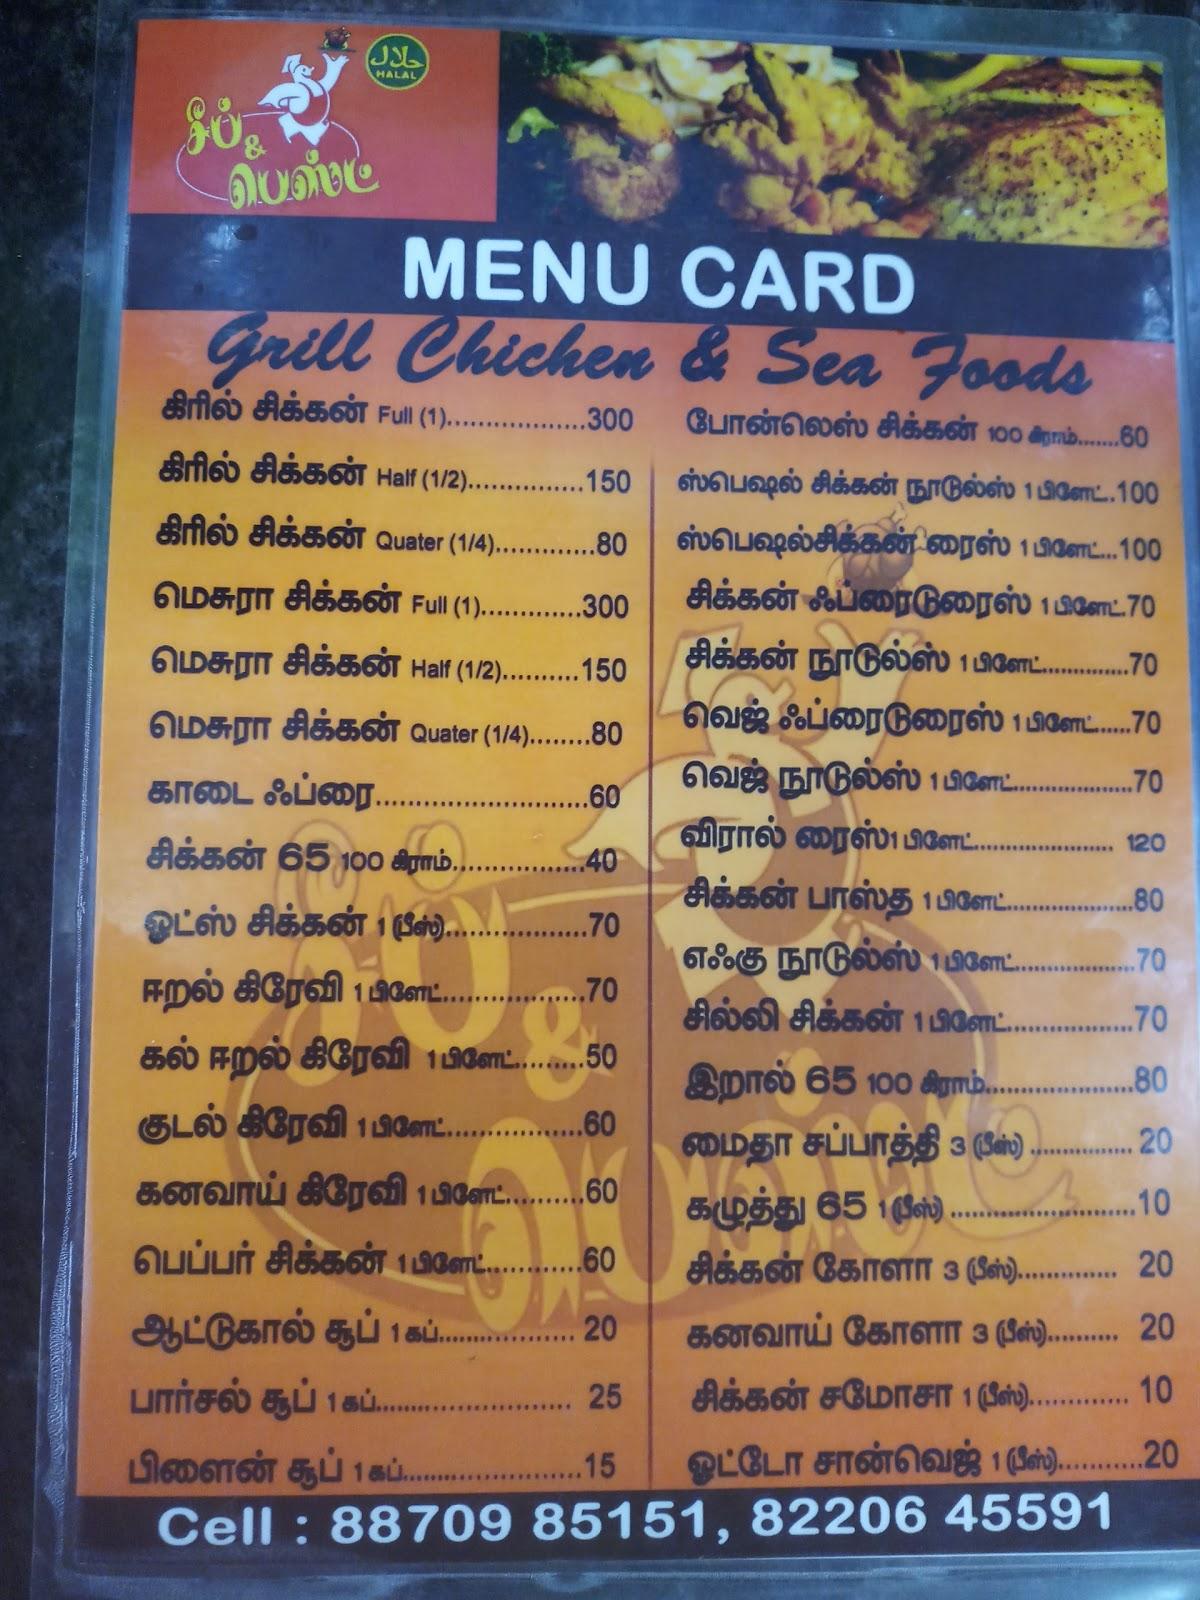 சீப்
&
பெஸ்ட்
حلال
HALAL
MENU CARD
Grill Chichen & Sea Foods
கிரில் சிக்கன் Full (1)..................300
கிரில் சிக்கன் Half (1/2)...............150
கிரில் சிக்கன் Quater (1/4).............80
மெசுரா சிக்கன் Full (1).............300
மெசுரா சிக்கன் Half (1/2)..........150
மெசுரா சிக்கன் Quater (1/4)........80
காடை ஃப்ரை...........................60
சிக்கன் 65 100 கிராம்.................40
ஓட்ஸ் சிக்கன் 1 (பீஸ்)..................70
ஈறல் கிரேவி 1 பிளேட்..................70
கல் ஈறல் கிரேவி 1 பிளேட்.........50
குடல் கிரேவி 1 பிளேட்.................60
கனவாய் கிரேவி 1 பிளேட்..........60
பெப்பர் சிக்கன் 1 பிளேட்............60
ஆட்டுகால் சூப் 1 கப்.................. 20
பார்சல் சூப் 1 கப்......................... 25
பிளைன் சூப் 1 கப்.......................15
போன்லெஸ் சிக்கன் 100 கிராம்.......60
ஸ்பெஷல் சிக்கன் நூடுல்ஸ் 1 பிளேட்..100
ஸ்பெஷல்சிக்கன் ரைஸ் 1 பிளேட்...100
சிக்கன் ஃப்ரைடுரைஸ் 1 பிளேட்.70
சிக்கன் நூடுல்ஸ் 1 பிளேட்..............70
வெஜ் ஃப்ரைடுரைஸ் 1 பிளேட்......70
வெஜ் நூடுல்ஸ் 1 பிளேட்...................70
விரால் ரைஸ்1 பிளேட்...................... 120
சிக்கன் பாஸ்த 1 பிளேட்....................80
எஃகு நூடுல்ஸ் 1 பிளேட்...................70
சில்லி சிக்கன் 1 பிளேட்....................70
இறால் 65 100 கிராம்.......................80
மைதா சப்பாத்தி 3 (பீஸ்) ................ 20
கழுத்து 65 1 (பீஸ்) ..........................10
சிக்கன் கோளா 3 (பீஸ்)............... 20
கனவாய் கோளா 3 (பீஸ்).......... 20
சிக்கன் சமோசா 1 (பீஸ்)............. 10
ஓட்டோ சான்வெஜ் 1 (பீஸ்)...........20
Cell : 88709 85151, 82206 45591